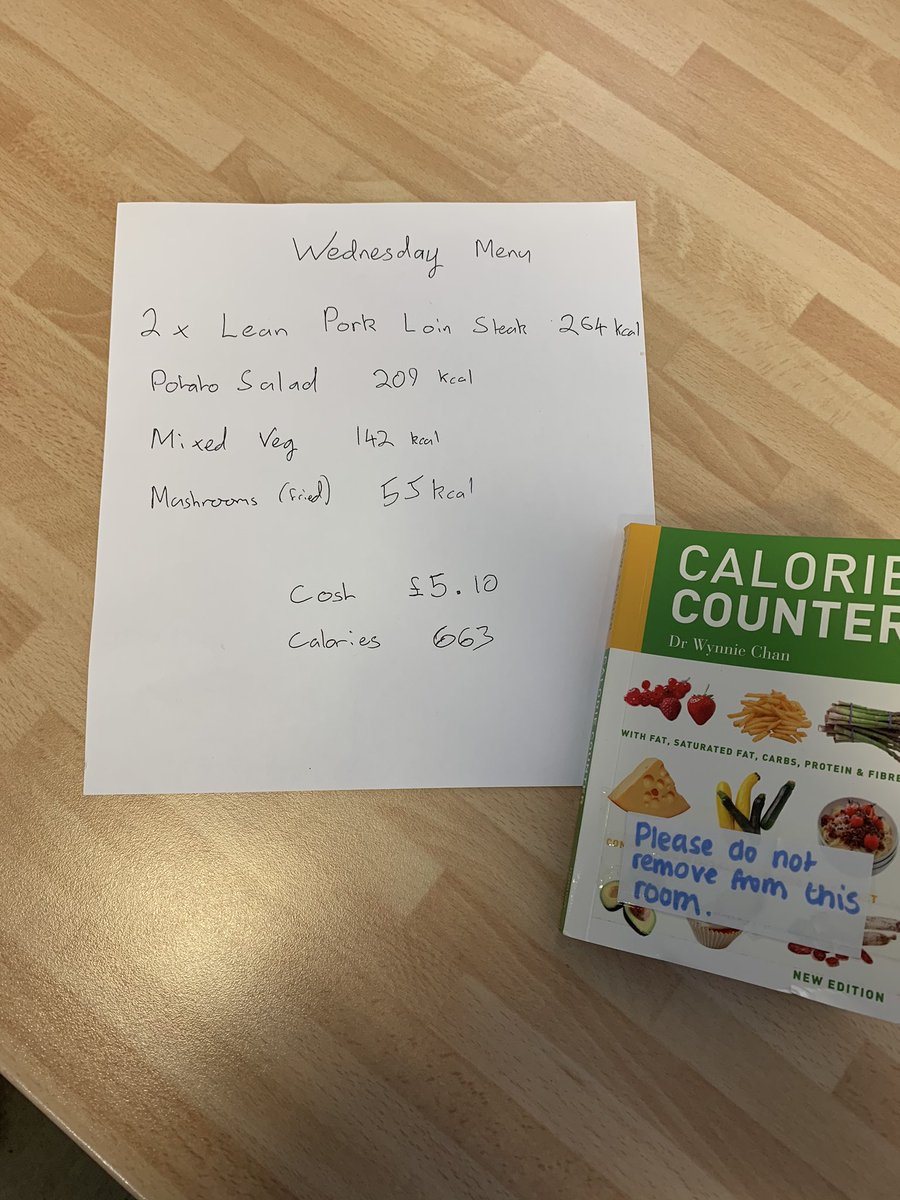 Wednesday Menu
2 x Lean Pork Loin Steak 264 kcal
Potato Salad 209 kcal
Mixed Veg 142 kcal
Mushrooms (fried) 55 kcal
Cosh £5.10
Calories 663
CALORIE
COUNTER
Dr Wynnie Chan
WITH FAT, SATURATED FAT, CARBS, PROTEIN & FIBRE
Please do not
remove from this
room.
NEW EDITION